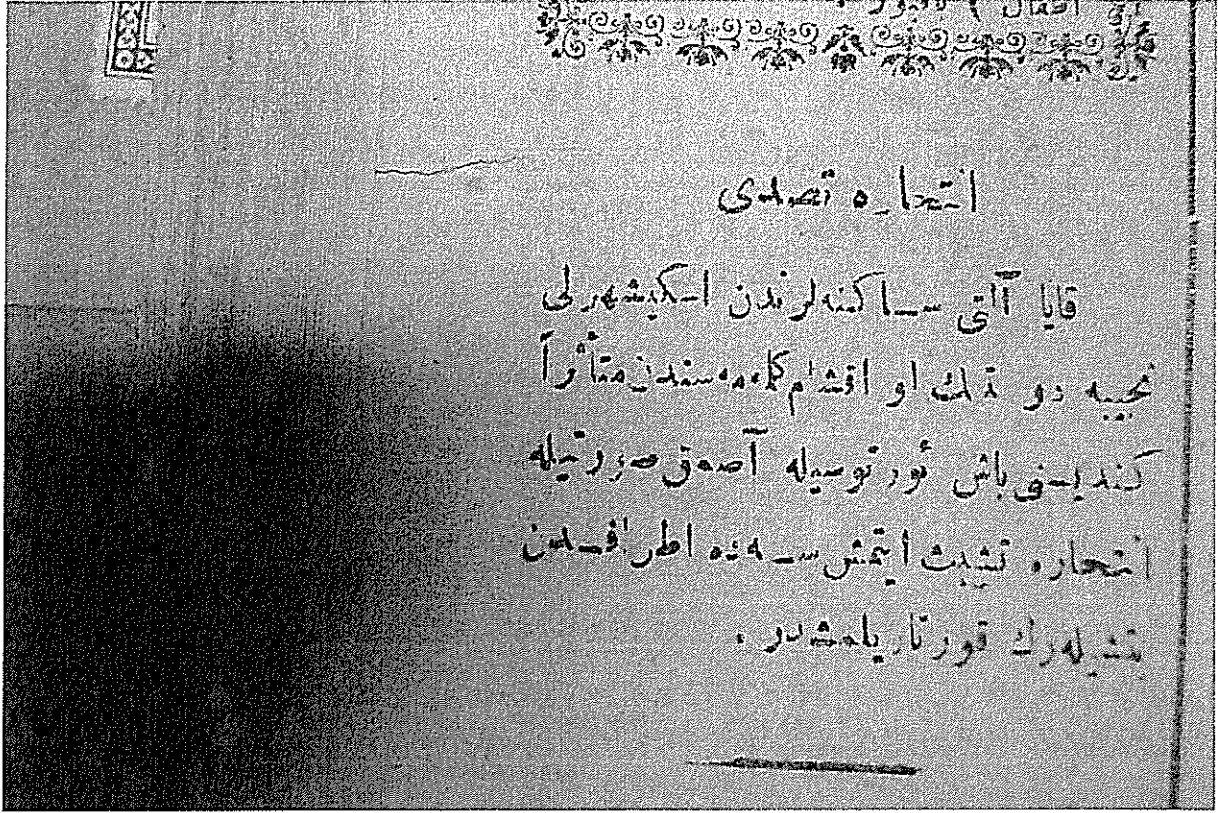 انتحاره تصدی
قایا آلتی ساکنه‌لرندن اسکیشهرلی
نجیبه دو او اقشام متأثراً
کندیسنی باش ئورتوسیله آصمق صورتیله
انتحاره تشبث ایتمش سه‌ده اطرافدن
یتشیله‌رك قورتاریلمشدر .